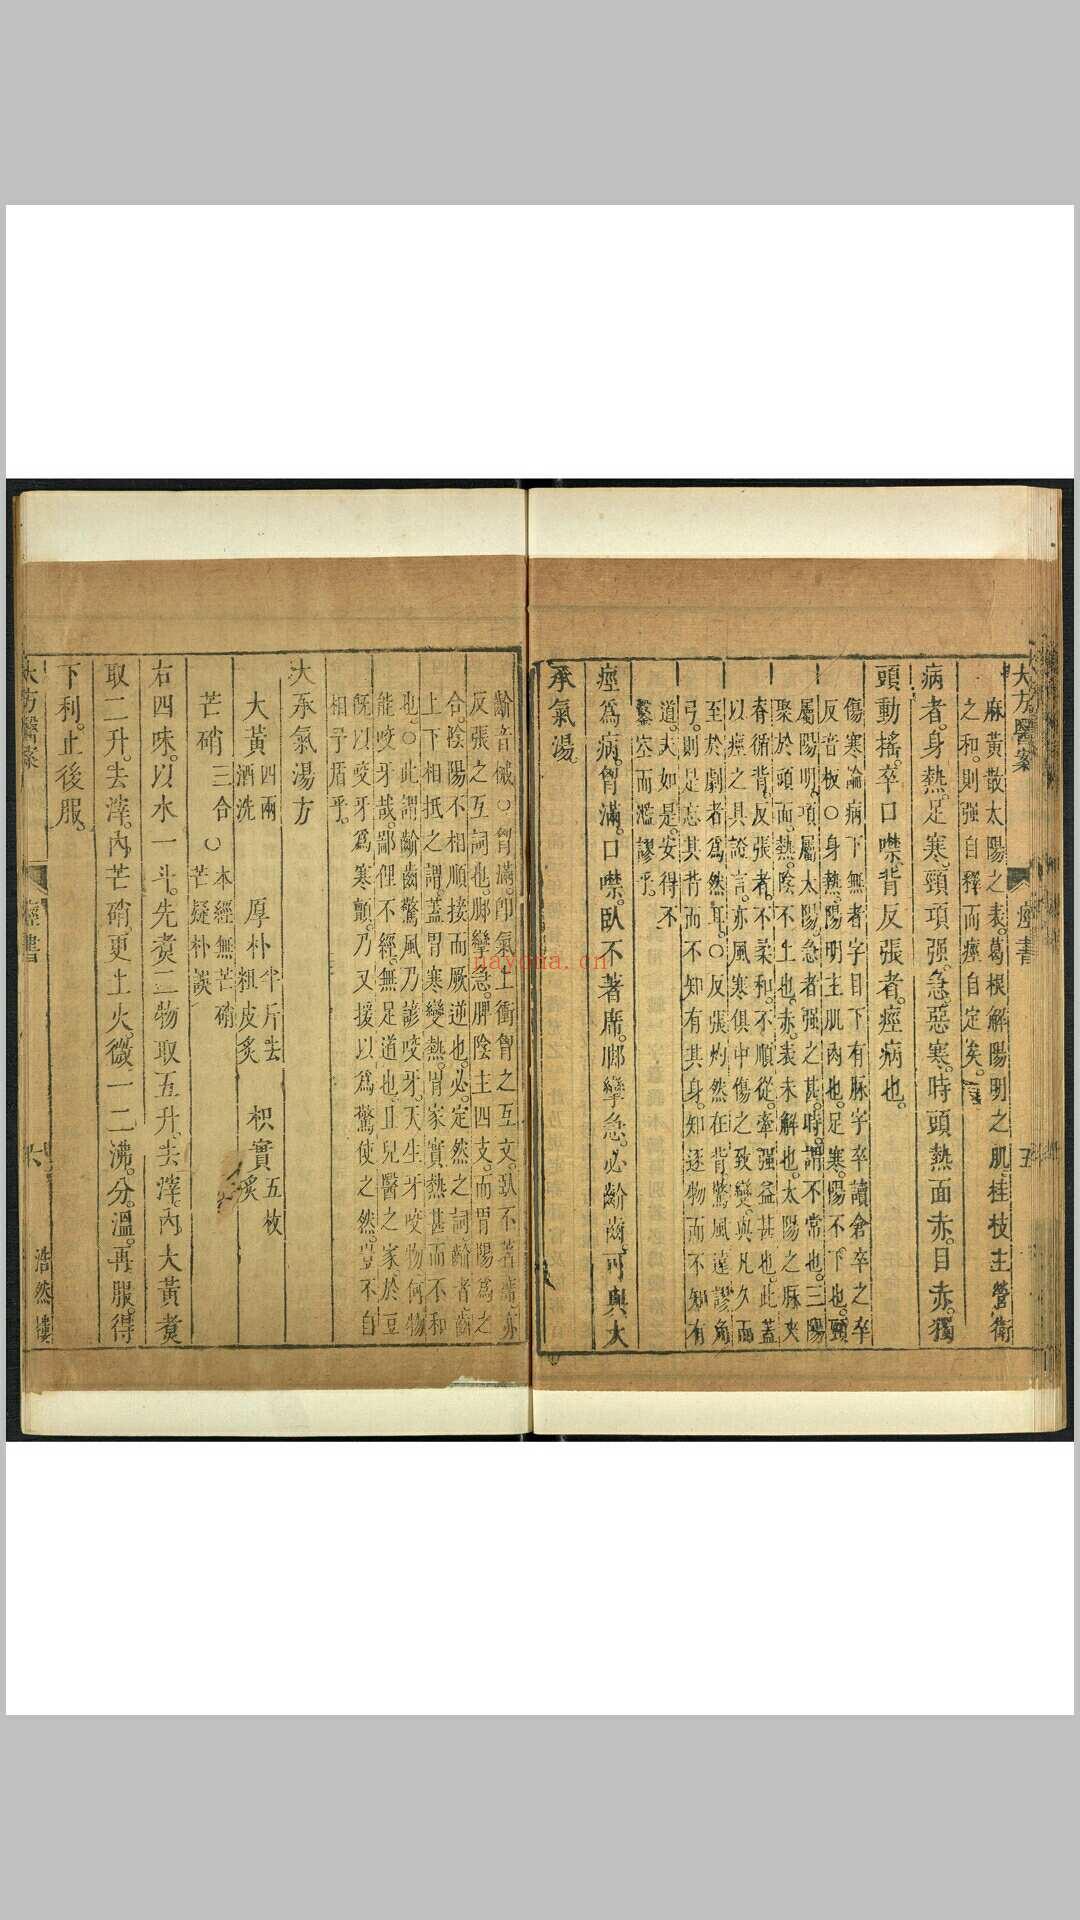 大方醫案
痙書
五
麻黃散太陽之表。葛根解陽明之肌。桂枝主營衛
之和。則強自釋而痙自定矣。
病者。身熱。足寒。頸項强。急。惡寒。時頭熱。面赤。目赤。獨
頭動搖。卒口噤。背反張者。痙病也。
傷寒論病下無者字目下有脉字卒讀倉卒之卒
反音板○身熱。陽明主肌肉也。足寒。陽不下也。頸
屬陽明。項屬太陽。急者强之甚。時。謂不常也。三陽
聚於頭。面熱。陰不上也。赤。表未解也。太陽之脉夾
脊循背。反張者。不柔和。不順從。牽强益甚也。此蓋
以痙之具證言。亦風寒俱中傷之致變。與凡久而
至於劇者爲然耳。○反張灼然在背驚風遠謬角
弓。則足忘其昔而不知有其身。知逐物而不知有
道。夫如是。安得不
鑿空而濫謬乎。
痙爲病。胷滿。口噤。臥不著席。脚攣急。必齘齒。可與大
承氣湯。
齘音械○胷滿。卽氣上衝胷之互文。臥不著席。亦
反張之互詞也。脚攣急。脾陰主四支。而胃陽爲之
合。陰陽不相順接而厥逆也。必。定然之詞。齘者。齒
上下相抵之謂。蓋胃寒變熱。胃家實熱甚而不和
也。○此謂齘齒驚風乃諺咬牙。天生牙咬物何物
能咬牙哉鄙俚不經。無足道也。且兒醫之家於豆
旣以咬牙爲寒顫。乃又援以爲驚使之然。豈不自
相矛盾乎。
大承氣湯方
大黃四兩酒洗 厚朴半斤去粗皮炙 枳實五枚炙
芒硝三合○本經無芒硝芒疑朴誤
右四味。以水一斗。先煑二物取五升。去滓。內大黃煑
取二升。去滓。內芒硝更上火。微一二沸。分溫再服。得
下利。止後服。
大方醫案
痙書
六
浩然樓
nayona.cn